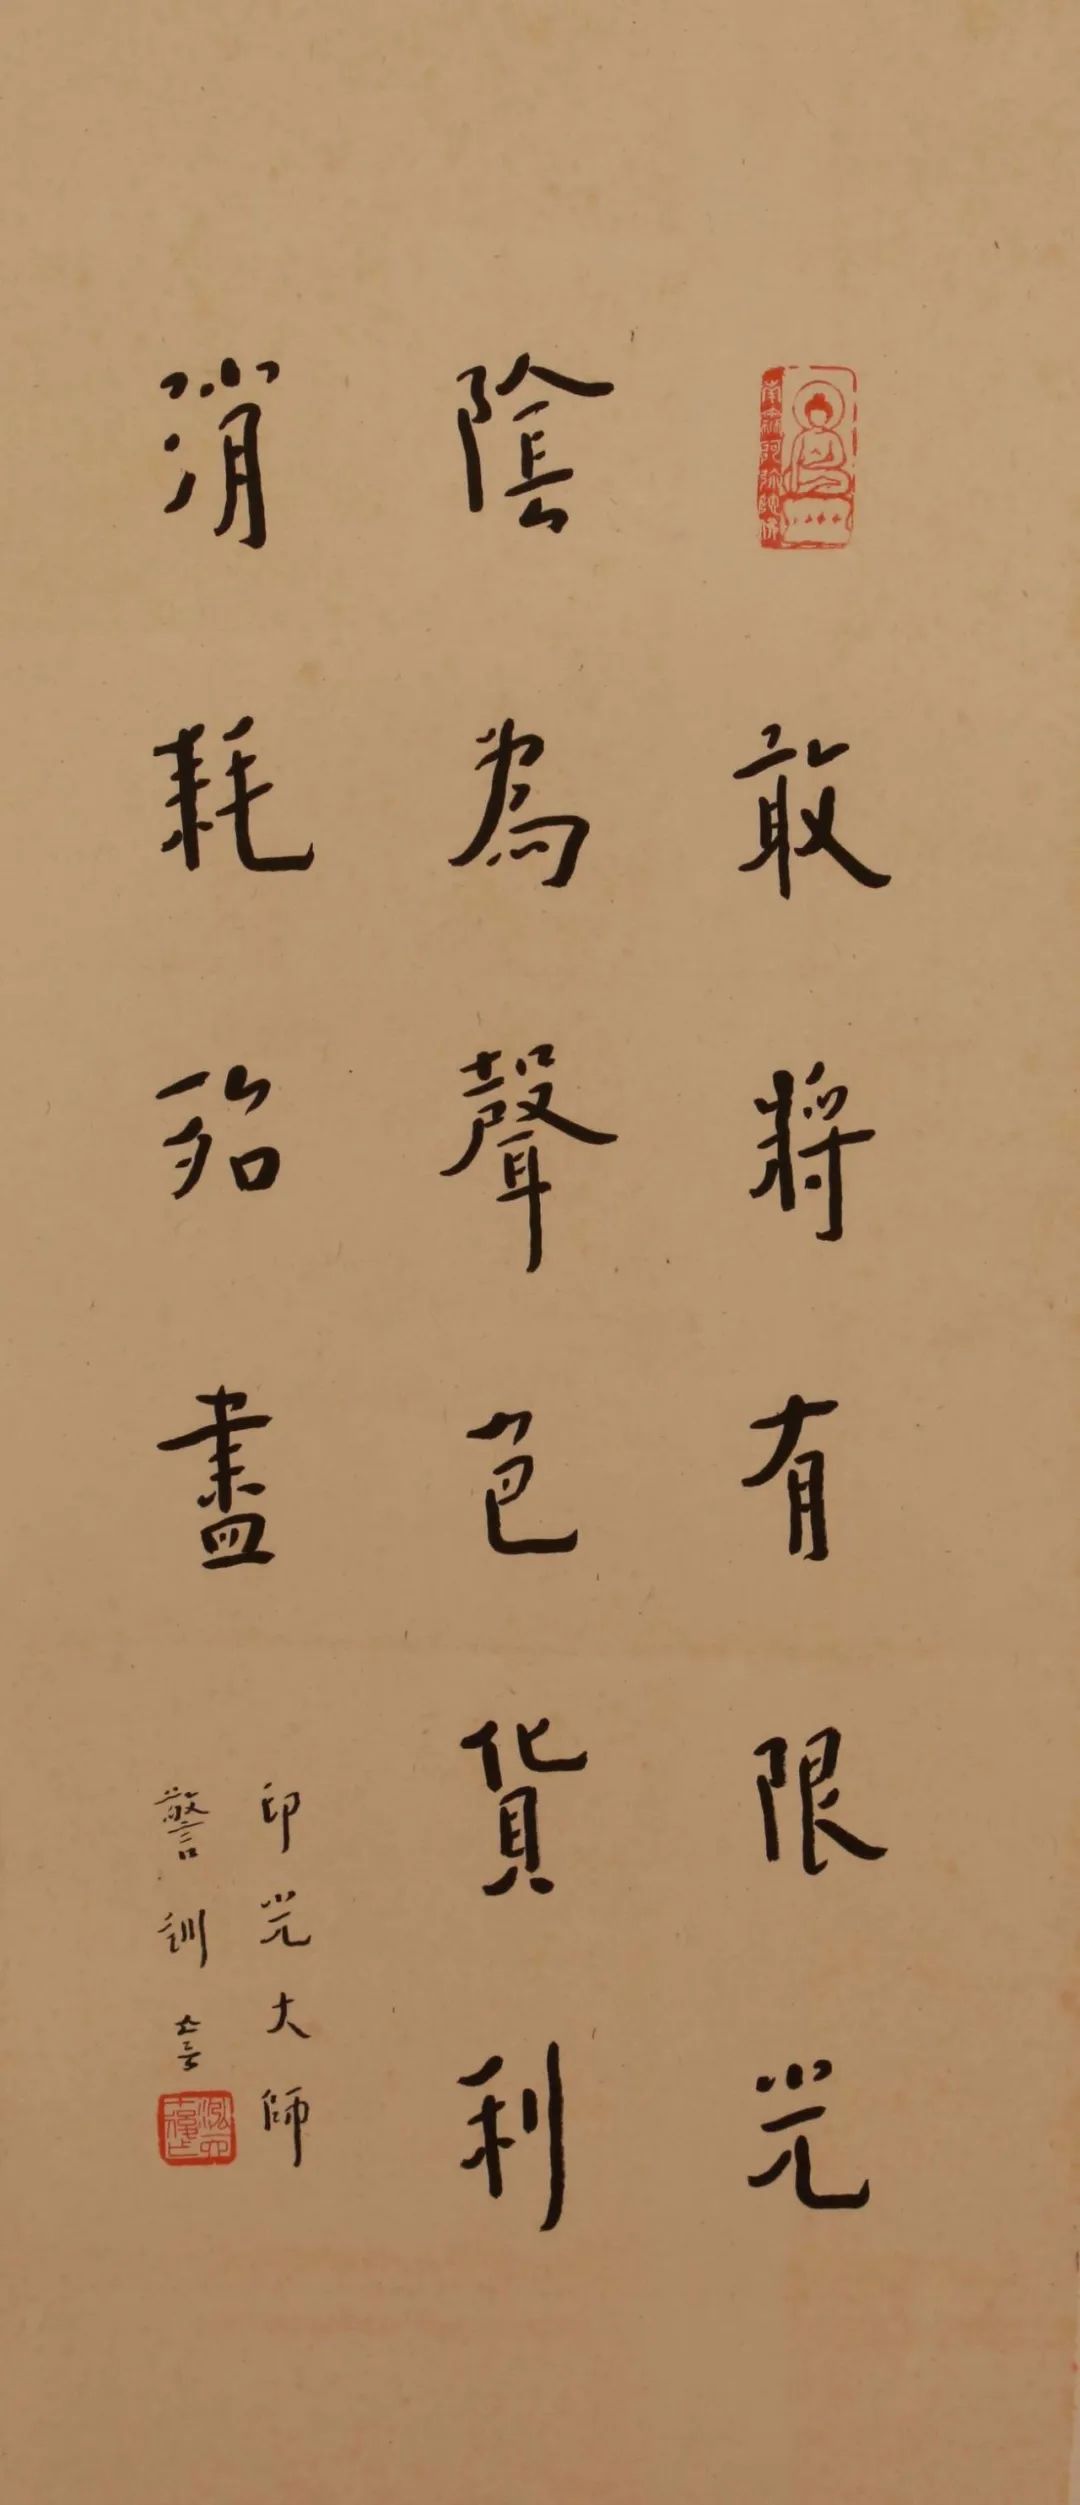 南無阿彌陀佛
敢將有限光
陰為聲色貨利
消耗殆盡
印光大師
警訓 音
弘一